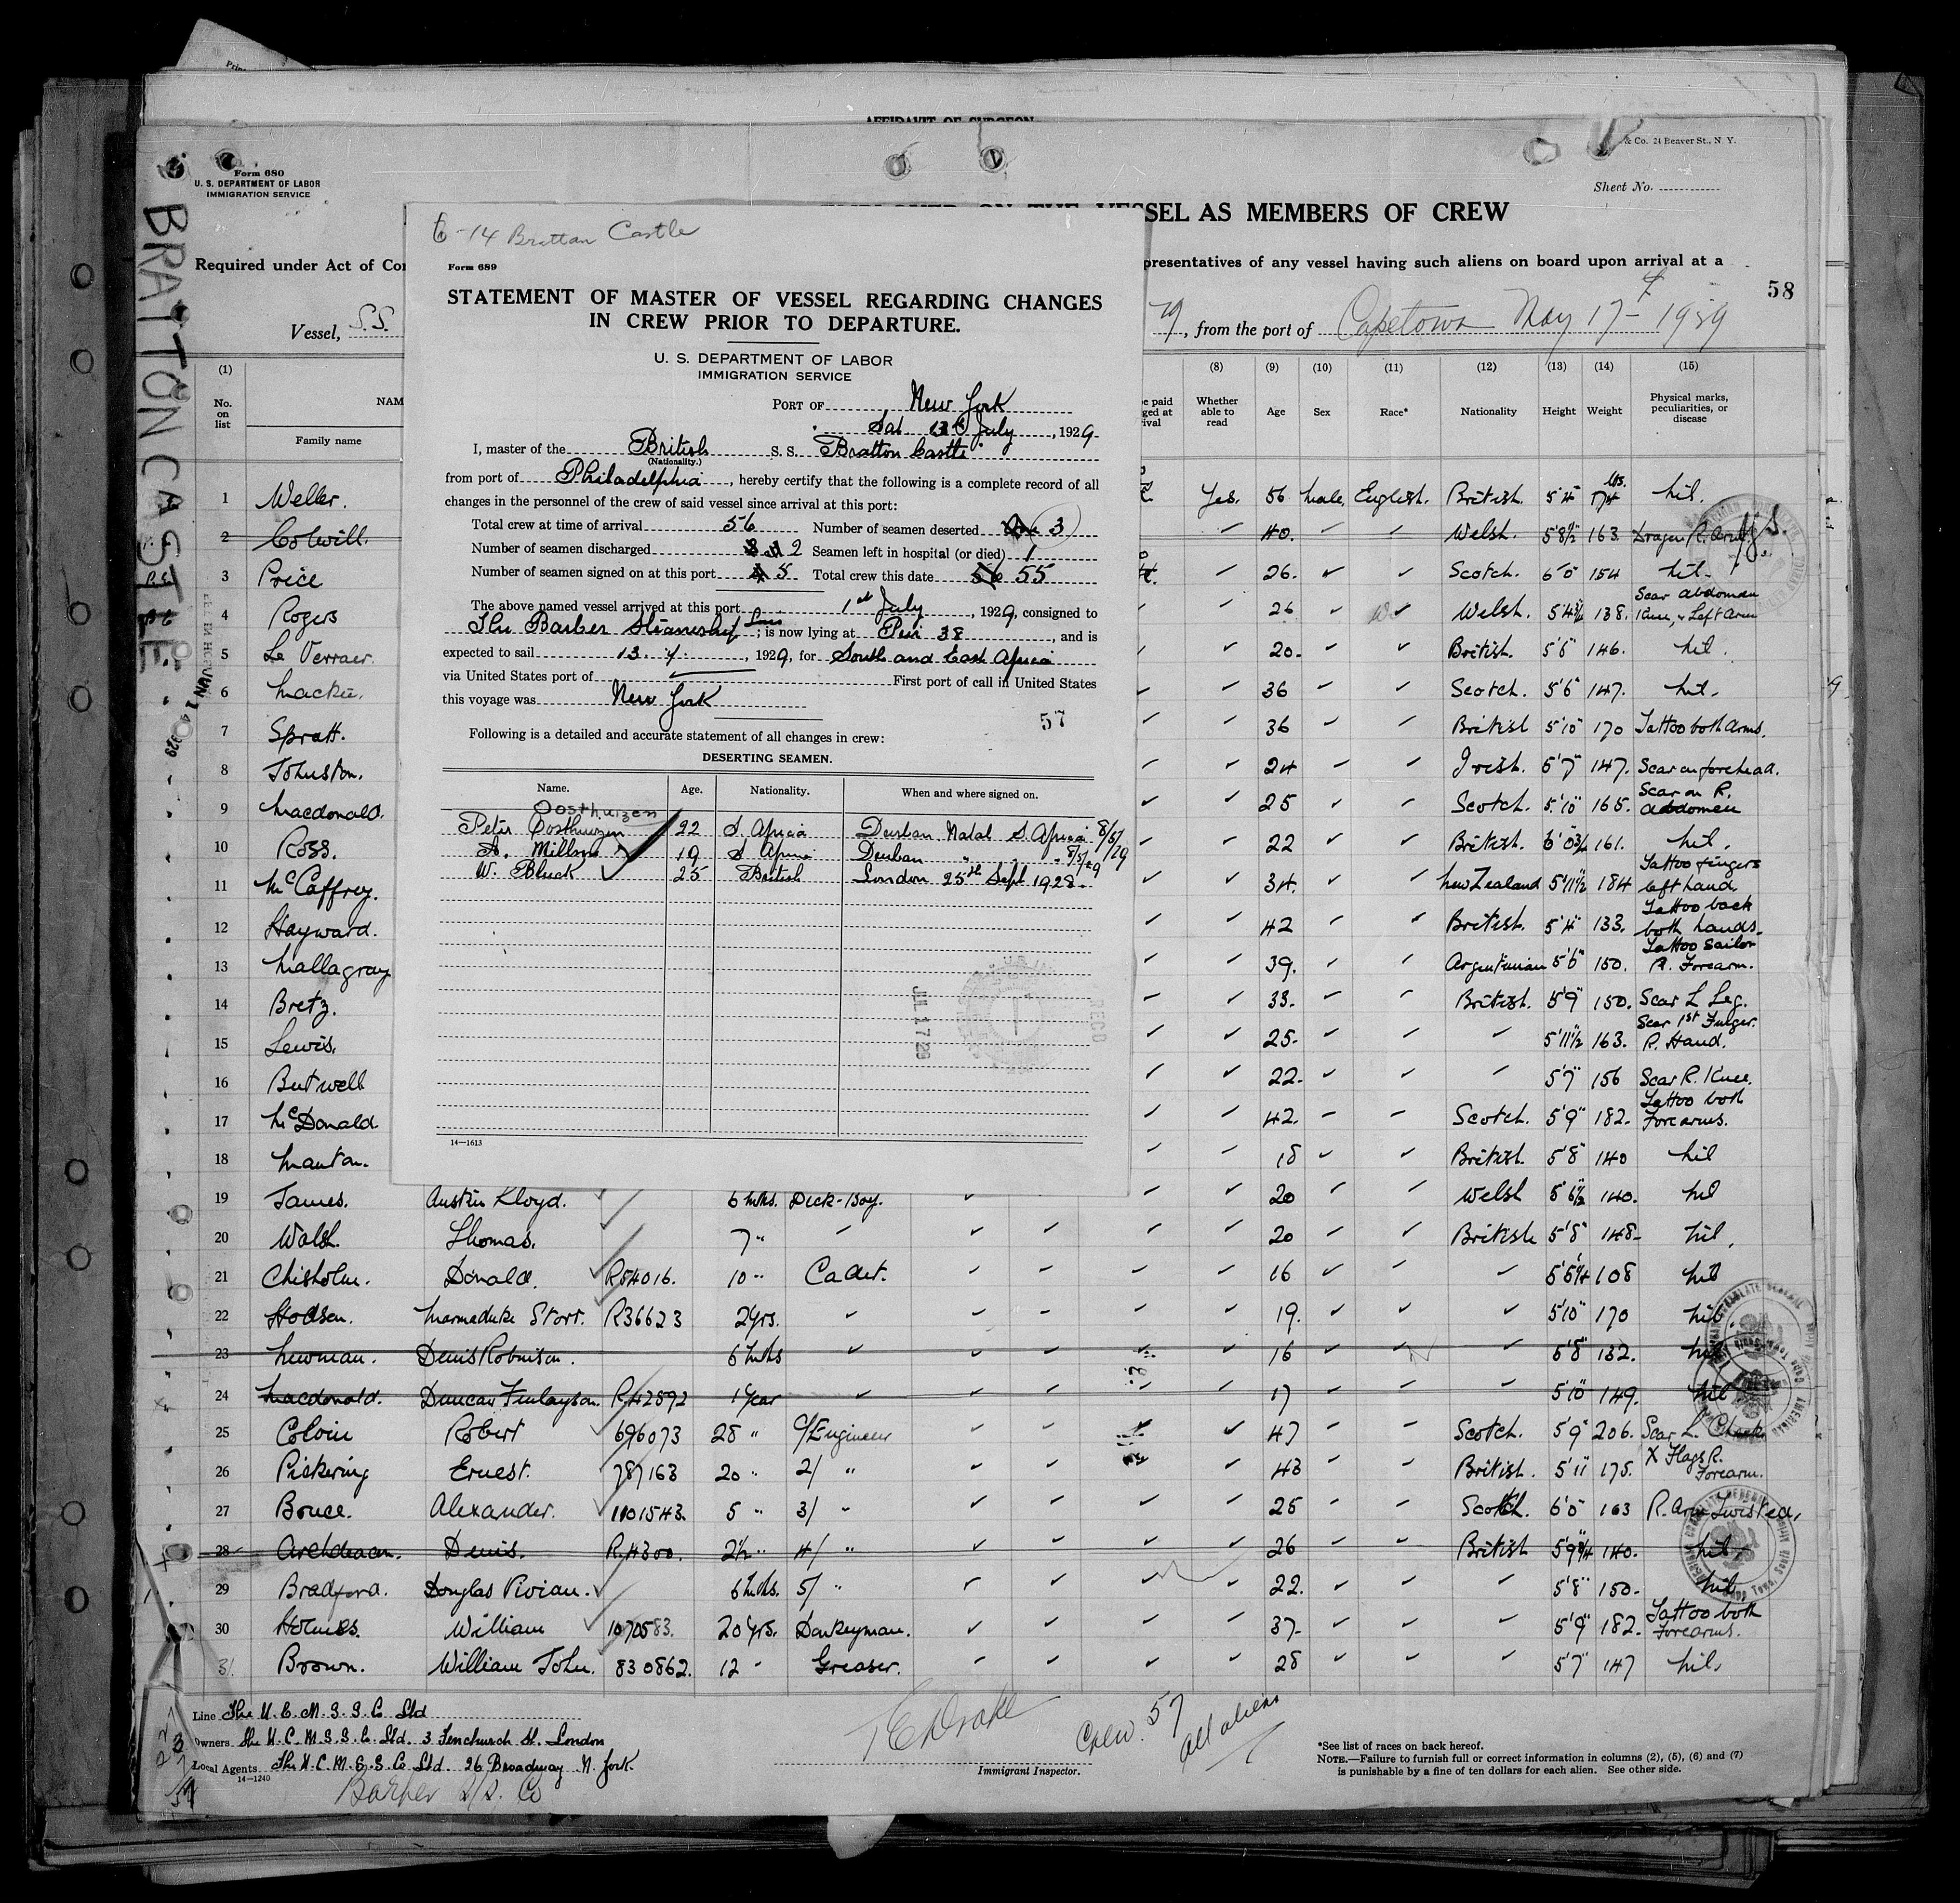 AFFIDAVIT OF SURGEON
Form 680
U. S. DEPARTMENT OF LABOR
IMMIGRATION SERVICE
& Co. 24 Beaver St., N. Y.
Sheet No.
BRATTON CASTLE
VESSEL AS MEMBERS OF CREW
Required under Act of Con
presentatives of any vessel having such aliens on board upon arrival at a
58
Vessel, S.S.
, from the port of Capetown May 17 1929
6-14 Brattan Castle
Form 689
STATEMENT OF MASTER OF VESSEL REGARDING CHANGES
IN CREW PRIOR TO DEPARTURE.
U. S. DEPARTMENT OF LABOR
IMMIGRATION SERVICE
PORT OF New York
Sat 13th July, 1929
I, master of the British S. S. Bratton Castle
(Nationality.)
from port of Philadelphia, hereby certify that the following is a complete record of all
changes in the personnel of the crew of said vessel since arrival at this port:
Total crew at time of arrival 56 Number of seamen deserted 3
Number of seamen discharged 2 Seamen left in hospital (or died) 1
Number of seamen signed on at this port 5 Total crew this date 56 55
The above named vessel arrived at this port 1st July, 1929, consigned to
The Barber Steamship Lines; is now lying at Pier 38, and is
expected to sail 13. 7., 1929, for South and East Africa
via United States port of First port of call in United States
this voyage was New York
57
Following is a detailed and accurate statement of all changes in crew:
DESERTING SEAMEN.
Name. Age. Nationality. When and where signed on.
Oosthuizen
Peter Oosthuizen 22 S Africa Durban Natal S. Africa 8/5/29
A. Millson 19 S Africa Durban " " 8/5/29
W. Bluck 25 British London 25th Sept 1928.
JUL 17 29
RECD
14—1613
(1) (8) (9) (10) (11) (12) (13) (14) (15)
No. on list
NAM
Family name
Whether able to read
Age
Sex
Race*
Nationality
Height
Weight
Physical marks, peculiarities, or disease
1 Weller. Yes. 56 Male, English. British. 5'4" 174 lbs. Nil.
2 Colwill. 40. Welsh. 5'8½" 163. Dragon R. Arm.
3 Price 26. Scotch. 6'0" 154 Nil.
4 Rogers 26 Welsh. 138. Scar abdomen Knee, & Left Arm
5 Le Verraer. 20. British. 5'6" 146. Nil.
6 Mackie. 36 Scotch. 5'6" 147. Nil.
7 Spratt. 36 British 5'10" 170 Tattoo both Arms.
8 Johnston. 24 Irish. 5'7" 147. Scar on forehead.
9 Macdonald. 25 Scotch. 5'10" 165. Scar on R. abdomen
10 Ross. 22 British. 161. Nil.
11 McCaffrey. 34. New Zealand 5'11½" 184 Tattoo fingers left hand
12 Hayward. 42 British. 5'4" 133. Tattoo back both hands.
13 Mallagray 39. Argentinian 5'6" 150. Tattoo Sailor R. Forearm.
14 Bretz. 33. British. 5'9" 150. Scar L Leg.
15 Lewis. 25. " 5'11½ 163. Scar 1st Finger. R. Hand.
16 Butwell 22. " 5'7" 156 Scar R. Knee.
17 McDonald 42. Scotch. 5'9" 182. Tattoo both Forearms.
18 Manton. 18 British. 5'8" 140 Nil
19 James. Austin Lloyd. 6 Mths. Deck-Boy. 20 Welsh 5'6½ 140. Nil
20 Walsh. Thomas. 7 " 20 British 5'8" 148. Nil.
21 Chisholm. Donald. R54016. 10 " Cadet. 16 " 108 Nil
22 Hodsen. Marmaduke Storr. R36623 2 yrs. 19. " 5'10" 170 Nil.
23 Newman. Denis Robinson. 6 Mths 16 5'8" 132. Nil
24 Macdonald. Duncan Finlayson. R42592 1 year 17 5'10" 149. Nil
25 Colvin Robert 696073 28 " C/Engineer 47 Scotch. 5'9" 206. Scar L. Cheek
26 Pickering Ernest. 787163 20 " 2/ " 43 British. 5'11 175. X Flags R. Forearm.
27 Bruce. Alexander. 1101543. 5 " 3/ " 25 Scotch. 6'0" 163 R. Arm Twisted.
28 Archdeacon. Denis. R.4300. 2½ " 4/ " 26 British 5'9¾ 140. Nil
29 Bradford. Douglas Vivian. 6 Mths. 5/ " 22. " 5'8" 150. Nil
30 Holmes. William 1070583. 20 yrs. Donkeyman. 37. " 5'9" 182. Tattoo both Forearms.
31. Brown. William John. 830862. 12 " Greaser. 28 " 5'7" 147 Nil.
Line The U. C. M. S. S. Co Ltd
Owners The U. C. M. S. S. Co. Ltd. 3 Fenchurch St. London
Local Agents The U. C. M. S. S. Co Ltd. 26 Broadway N. York.
14—1240
Barber S/S. Co
Immigrant Inspector.
Crew. 57
all aliens
*See list of races on back hereof.
NOTE.—Failure to furnish full or correct information in columns (2), (5), (6) and (7)
is punishable by a fine of ten dollars for each alien. See other side.